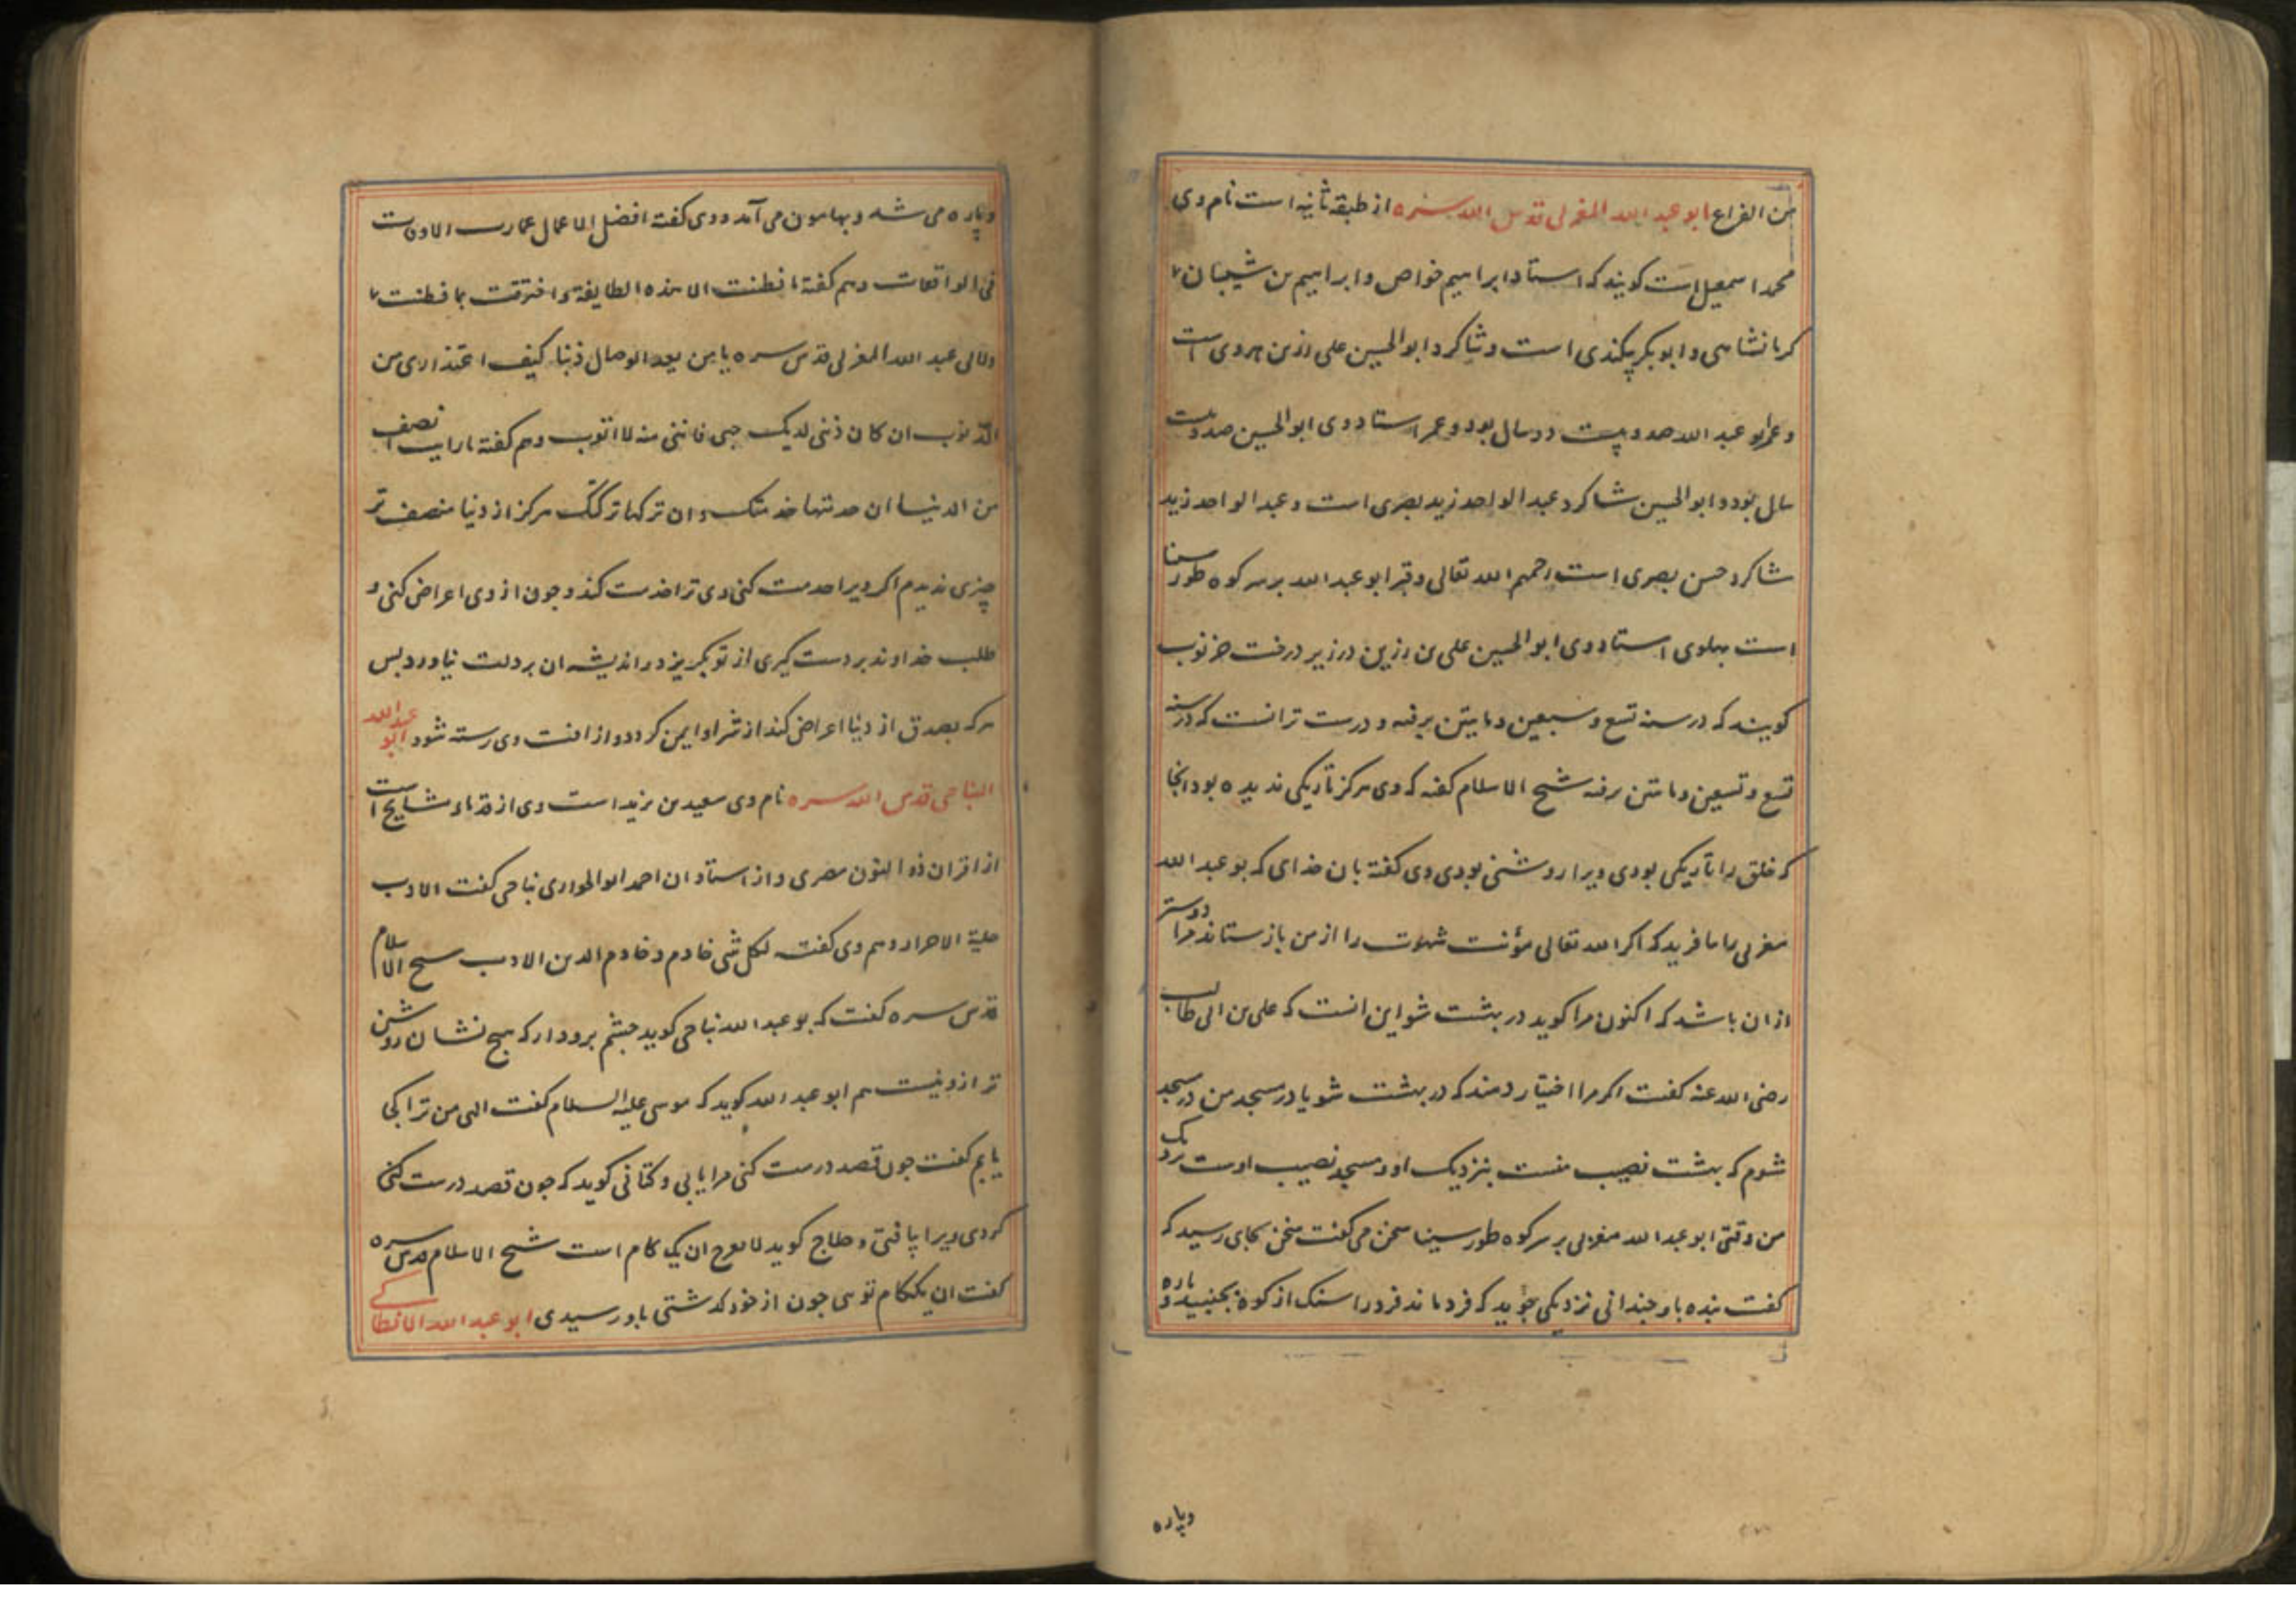 من الفراغ ابو عبد الله المغربی قدس الله سره از طبقه ثانیه است نام وی
محمد اسمعیل است کویند که استاد ابراهیم خواص و ابراهیم بن شیبان
کرمانشاهی و ابو بکر بیکندی است و شاکرد ابو الحسین علی رزین هروی است
و عمر ابو عبد الله صد و بیست و دو سال بود و عمر استاد وی ابو الحسین صد و بیست
سال بود و ابو الحسین شاکرد عبد الواحد زید بصری است و عبد الواحد زید
شاکرد حسن بصری است رحمهم الله تعالی و قبر ابو عبد الله بر سر کوه طور سینا
است بهلوی استاد وی ابو الحسین علی بن رزین در زیر درخت خرنوب
کویند که در سنه تسع و سبعین و مایتین برفته و درست تر انست که در سنه
تسع و تسعین و مایتین برفته شیخ الاسلام کفته که وی هرکز تاریکی ندیده بود انجا
که خلق را تاریکی بودی ویرا روشنی بودی وی کفته بان خدای که بو عبد الله
مغربی را بیافرید که اکر الله تعالی مؤنت شهوت را از من باز ستاند مرا دوستر
ازان باشد که اکنون مرا کوید در بهشت شو این انست که علی بن ابی طالب
رضی الله عنه کفت اکر مرا اختیار دهند که در بهشت شو یا در مسجد من در مسجد
شوم که بهشت نصیب منست بنزدیک او و مسجد نصیب اوست نزدیک
من وقتی ابو عبد الله مغربی بر سر کوه طور سینا سخن می کفت سخن بجای رسید که
کفت بنده باو چندانی نزدیکی جوید که فرد ماند فرد را سنک از کوه بجنبید و پاره
وپاره
وپاره می شد و بهامون می آمد و وی کفته افضل الاعمال عمارت الاوقات
فی الواقعات و هم کفته ما فطنت الا هذه الطایفة و احترقت بما فطنت
ولابی عبد الله المغربی قدس سره یا من یعد الوصال ذنبا کیف اعتذاری من
الذنوب ان کان ذنبی لدیک حبی فاننی منه لا اتوب و هم کفته ما رایت انصف
من الدنیا ان خدمتها خدمتک و ان ترکتها ترکتک هرکز از دنیا منصف تر
چیزی ندیدم اکر ویرا خدمت کنی وی ترا خدمت کند و جون از وی اعراض کنی و
طلب خداوند بر دست کیری از تو بکریزد و اندیشه ان بر دلت نیاورد بس
هر که بصدق از دنیا اعراض کند از شر او ایمن کردد و از افت وی رسته شود ابو عبد الله
النباجی قدس الله سره نام وی سعید بن یزید است وی از قدماء مشایخ است
از اقران ذو النون مصری و از استادان احمد ابو الحواری نباجی کفت الادب
حلیة الاحرار و هم وی کفت لکل شی خادم و خادم الدین الادب شیخ الاسلام
قدس سره کفت که بو عبد الله نباجی کوید جشم برو دار که هیچ نشان روشن
تر ازو نیست هم ابو عبد الله کوید که موسی علیه السلام کفت الهی من ترا کجا
یابم کفت جون قصد درست کنی مرا یابی و کتانی کوید که جون قصد درست کنی
کردی ویرا یافتی و حلاج کوید ان یک کام است شیخ الاسلام قدس سره
کفت ان یککام توی جون از خود کذشتی باو رسیدی ابو عبد الله الانطاکی